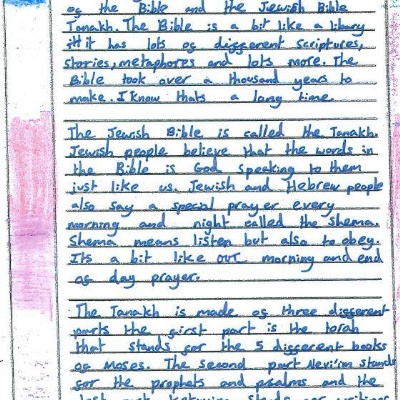 of the Bible and the Jewish Bible
Tanakh. The Bible is a bit like a libary
it has lots of different scriptures,
stories, metaphores and lots more. The
Bible took over a thousand years to
make. I know thats a long time.
The Jewish Bible is called the Tanakh.
Jewish people believe that the words in
the Bible is God speaking to them
just like us. Jewish and Hebrew people
also say a special prayer every
morning and night called the Shema.
Shema means listen but also to obey.
Its a bit like our morning and end
of day prayer.
The Tanakh is made of three different
parts the first part is the torah
that stands for the 5 different books
of Moses. The second part Nevi'im stands
for the prophets and psalms and the
last part ketuvim stands for writings